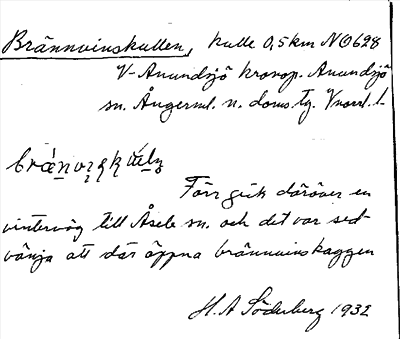 Brännvinskullen, kulle 0,5 km NO 628
V-Anundsjö kronop. Anundsjö
sn. Ångerml. n. doms. tg. Vnorrl. l.
Förr gick däröver en
vinterväg till Åsele sn. och det var sed-
vänja att där öppna brännvinskaggen
H. A Söderberg 1932